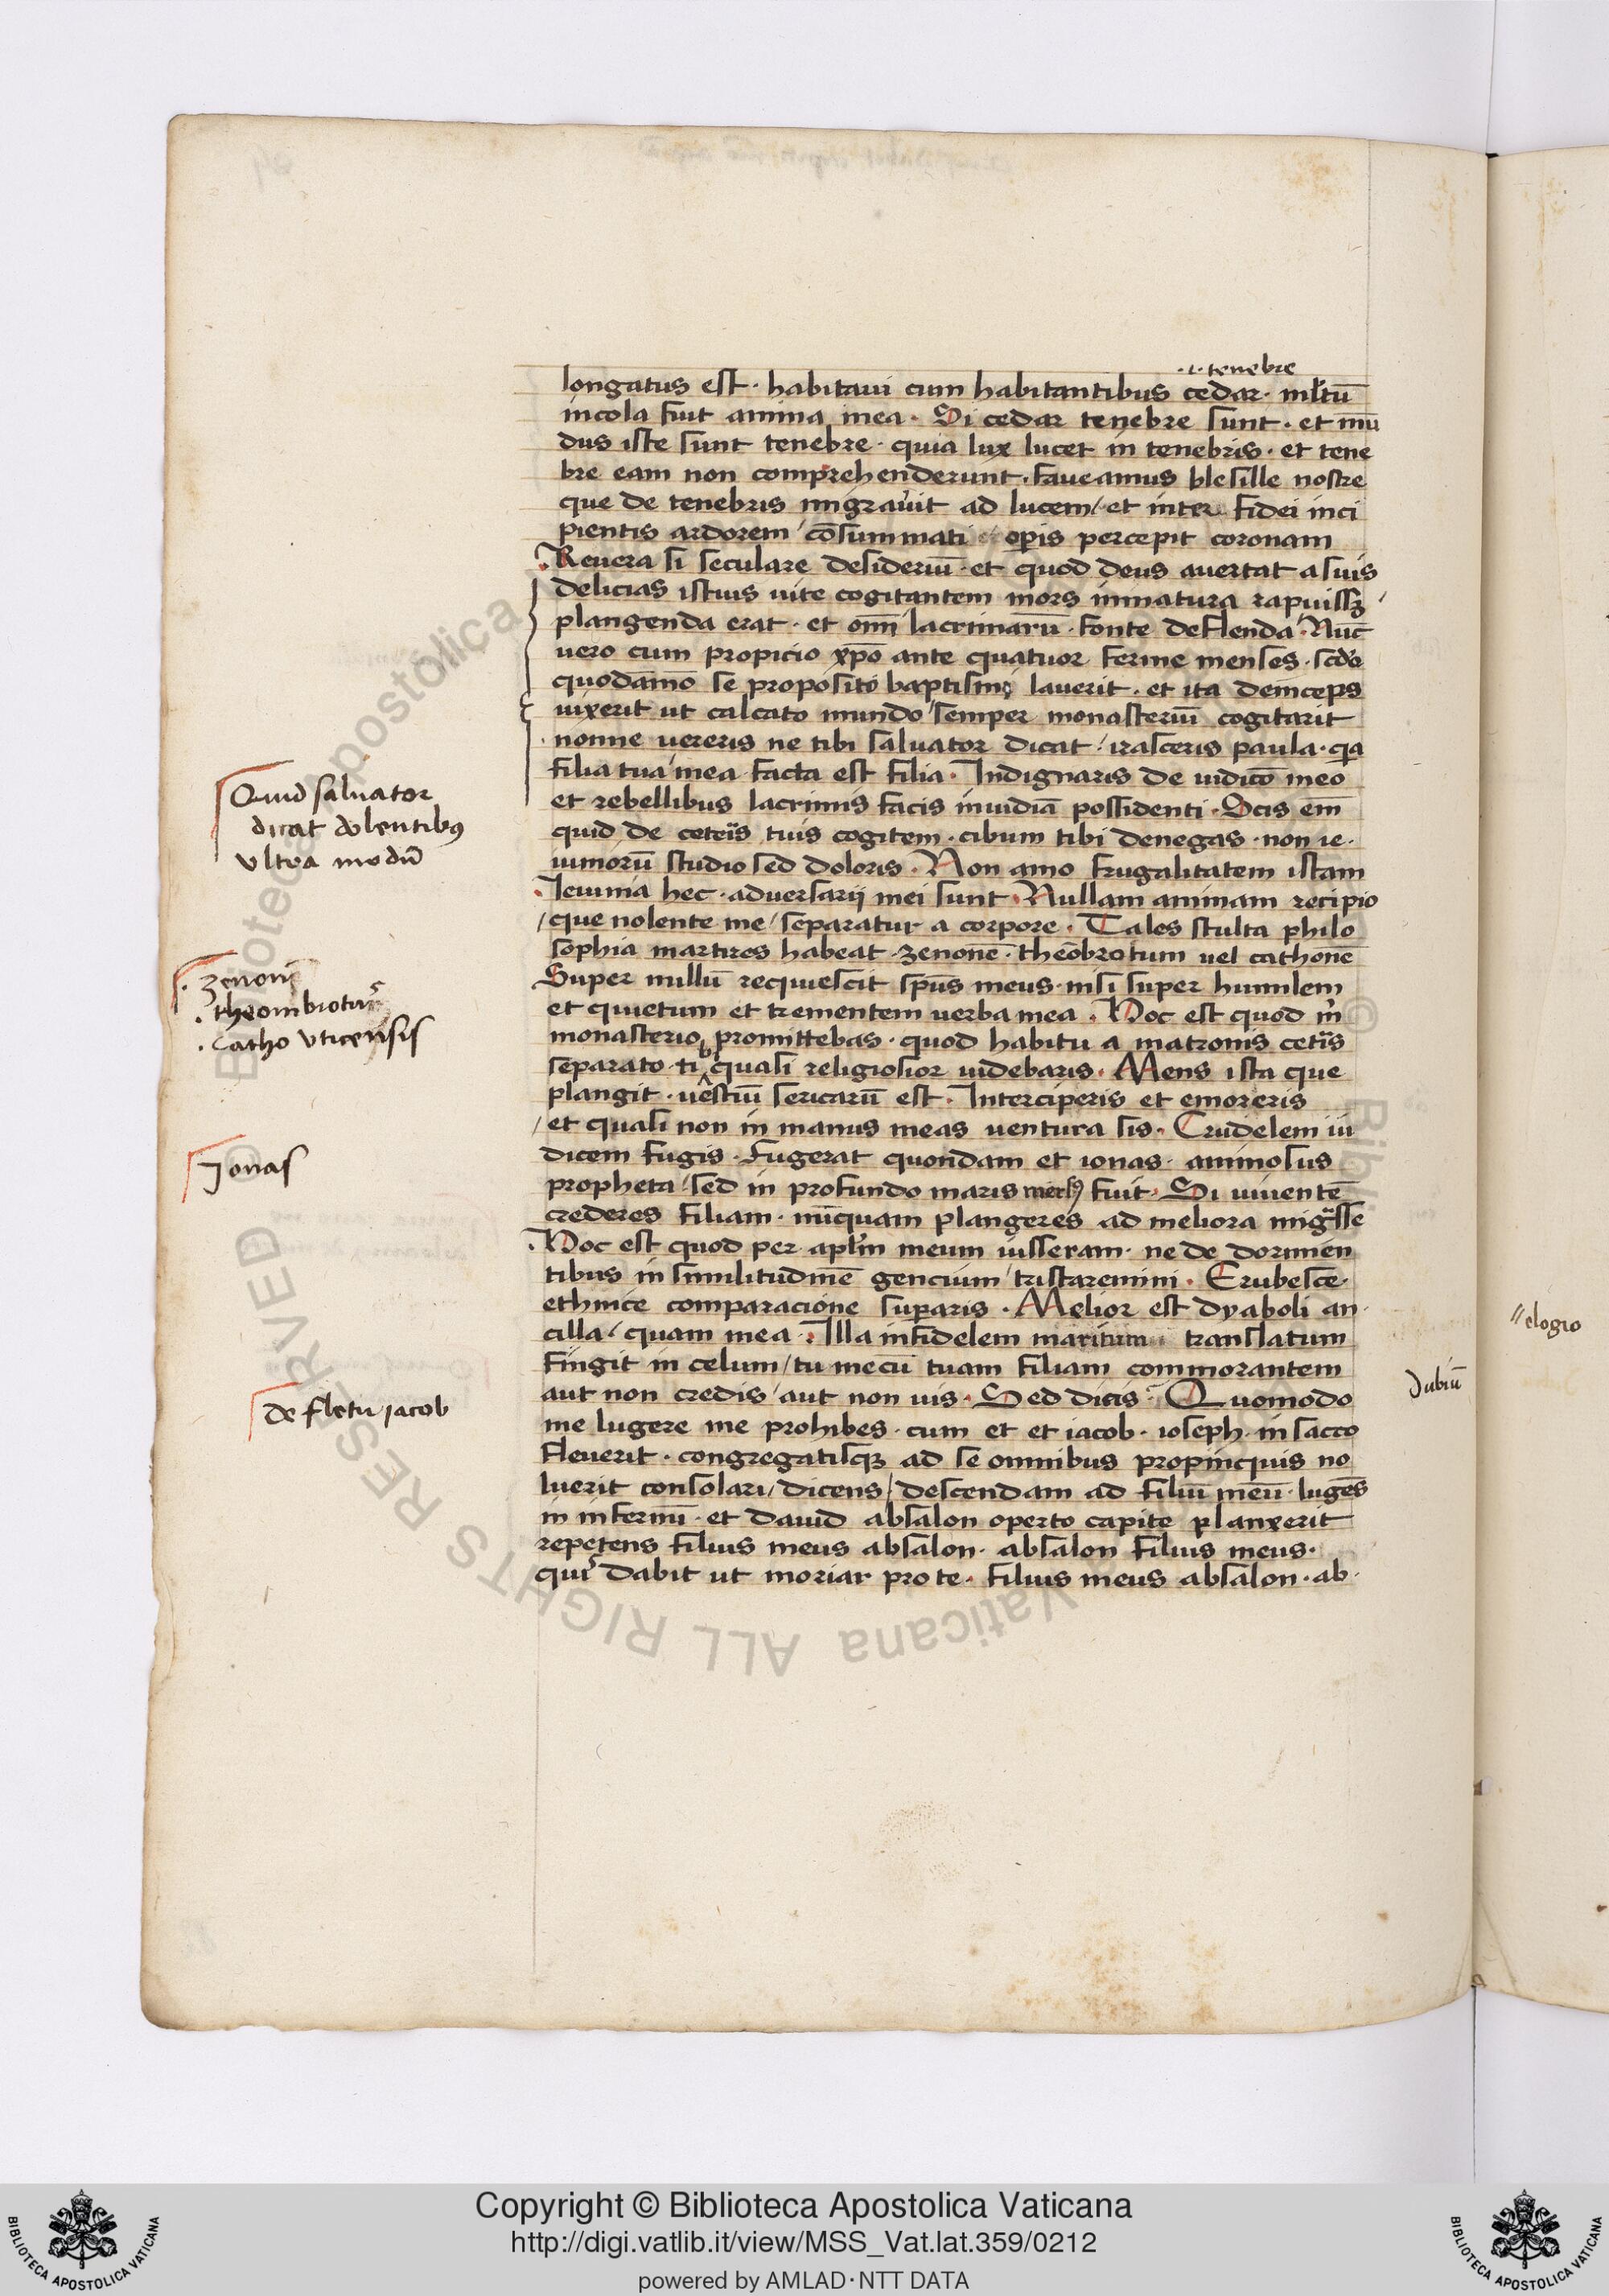 .i. tenebre
longatus est · habitaui cum habitantibus cedar · mltū
incola fuit anima mea · Si cedar tenebre sunt · et mū
dus iste sunt tenebre · quia lux lucet in tenebris · et tene
bre eam non comprehenderunt · faueamus blesille nostre
que de tenebris migrauit ad lucem / et inter fidei inci
pientis ardorem / cōsummati opis percepit coronam
Reuera si seculare desideriū · et quod deus auertat a suis
delicias istius uite cogitantem mors inmatura rapuissꝫ /
plangenda erat · et om̄i lacrimarū · fonte deflenda · Nūc
uero cum propicio xp̄o ante quatuor ferme menses · scdo
quodāmo se proposito baptismi lauerit · et ita deinceps
uixerit ut calcato mundo / semper monasteriū cogitarit
nonne uereris ne tibi saluator dicat / irasceris paula · qa
filia tua / mea facta est filia · Indignaris de iudicō meo
et rebellibus lacrimis facis inuidiā possidenti · Scis em̄
quid de ceteis tuis cogitem · cibum tibi denegas · non ie ·
iuniorū studio sed doloris · Non amo frugalitatem istam
Ieiunia hec · aduersarii mei sunt · Nullam animam recipio
/ que nolente me / separatur a corpore · Tales stulta philo
sophia martires habeat · zenonē · theōbrotum uel cathonē
Super nullū requiescit sp̄us meus · nisi super humilem
et quietum et trementem uerba mea · Hoc est quod m̄
monasterio promittebas · quod habitu a matronis cetis
separato · tibi quasi religiosior uidebaris · Mens ista que
plangit · uestiū sericarū est · Interciperis et emoreris
/ et quasi non in manus meas uentura sis · Crudelem iu
dicem fugis · Fugerat quondam et ionas · animosus
propheta / sed in profundo maris mersꝰ fuit · Si uiuentē
crederes filiam · nūquam plangeres ad meliora migsse
Hoc est quod per aplm meum iusseram · ne de dormien
tibus in similitudinē gencium / tristaremini · Erubesce ·
ethnice comparacione superaris · Melior est dyaboli an ·
cilla / quam mea · Illa infidelem maritum translatum
fingit in celum / tu mecū tuam filiam commorantem
aut non credis / aut non uis · Sed dicis · Quomodo
me lugere me prohibes · cum et et iacob · ioseph · in sacco
fleuerit · congregatisqꝫ ad se omnibus propinquis no
luerit consolari / dicens / descendam ad filiū meū · lugēs
in infernū · et dauid absalon operto capite planxerit
repetens filius meus absalon · absalon filius meus ·
quis dabit ut moriar pro te · filius meus absalon · ab ·
Quid saluator
dicat dolentibꝰ
vltra modū
· zenoni
· theombrotus
· catho vticensis
Jonas
de fletu iacob
dubiū
" elogio
Copyright © Biblioteca Apostolica Vaticana
http://digi.vatlib.it/view/MSS_Vat.lat.359/0212
powered by AMLAD · NTT DATA
BIBLIOTECA APOSTOLICA VATICANA
BIBLIOTECA APOSTOLICA VATICANA